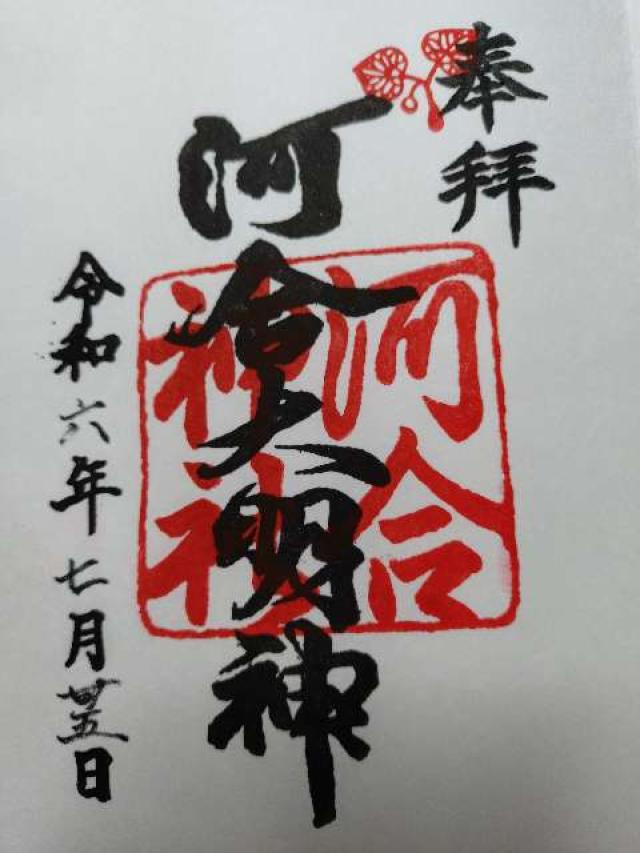 奉拝
河合大明神
河合神社
令和六年七月廿五日